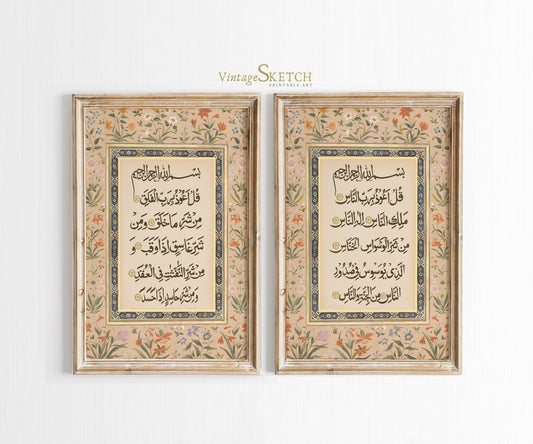 VintageSKETCH
PRINTABLE ART
بسم الله الرحمن الرحيم
قُلْ أَعُوذُ بِرَبِّ الْفَلَقِ
مِنْ شَرِّ مَا خَلَقَ وَمِنْ
شَرِّ غَاسِقٍ إِذَا وَقَبَ وَ
مِنْ شَرِّ النَّفّٰثٰتِ فِي الْعُقَدِ
وَمِنْ شَرِّ حَاسِدٍ إِذَا حَسَدَ
بسم الله الرحمن الرحيم
قُلْ أَعُوذُ بِرَبِّ النَّاسِ
مَلِكِ النَّاسِ إِلٰهِ النَّاسِ
مِنْ شَرِّ الْوَسْوَاسِ الْخَنَّاسِ
الَّذِي يُوَسْوِسُ فِي صُدُورِ
النَّاسِ مِنَ الْجِنَّةِ وَالنَّاسِ